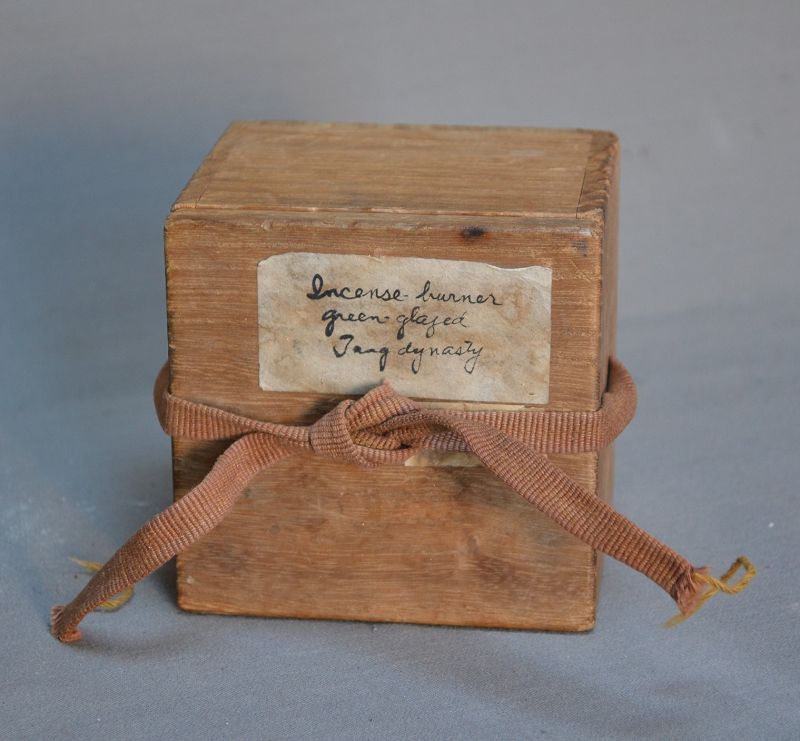 Incense-burner
green-glazed
Tang dynasty